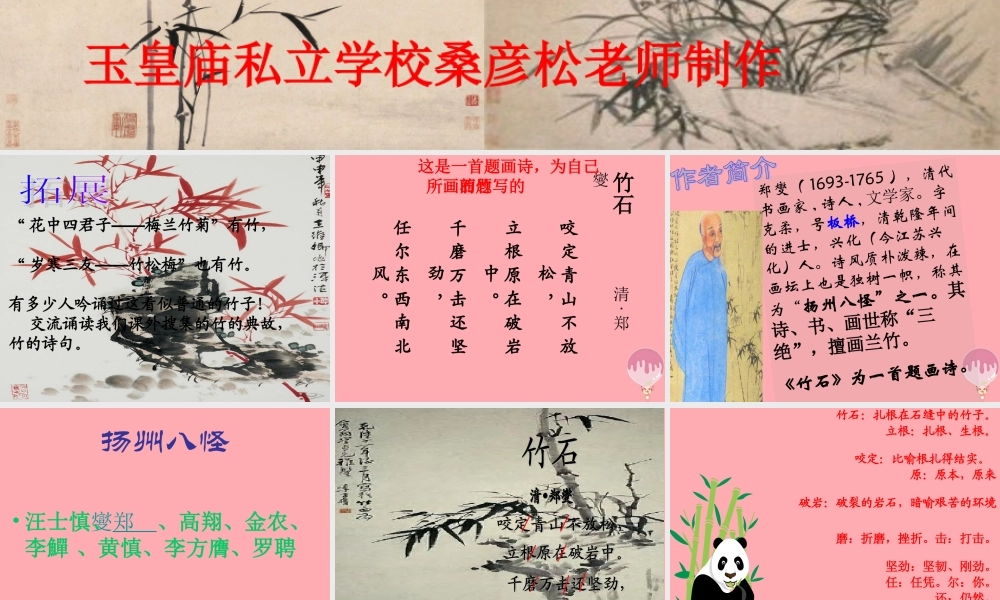 玉皇庙私立学校桑彦松老师制作
拓展
“花中四君子——梅兰竹菊”有竹，
“岁寒三友——竹松梅”也有竹。
有多少人吟诵过这看似普通的竹子！
交流诵读我们课外搜集的竹的典故，
竹的诗句。
这是一首题画诗，为自己
所画的
题写的
竹石
清·郑
燮
咬定青山不放
松，
立根原在破岩
中。
千磨万击还坚
劲，
任尔东西南北
风。
作者简介
郑燮（1693-1765），清代
书画家、诗人，文学家。字
克柔，号板桥，清乾隆年间
的进士，兴化（今江苏兴
化）人。诗风质朴泼辣，在
画坛上也是独树一帜，称其
为“扬州八怪”之一。其
诗、书、画世称“三
绝”，擅画兰竹。
《竹石》为一首题画诗。
扬州八怪
•汪士慎燮郑　、高翔、金农、
李鱓 、黄慎、李方膺、罗聘
竹石
清•郑燮
咬定青山不放松，
立根原在破岩中。
千磨万击还坚劲，
竹石：扎根在石缝中的竹子。
立根：扎根、生根。
咬定：比喻根扎得结实。
原：原本，原来
破岩：破裂的岩石，暗喻艰苦的环境
磨：折磨，挫折。击：打击。
坚劲：坚韧、刚劲。
任：任凭。尔：你。
还：仍然。